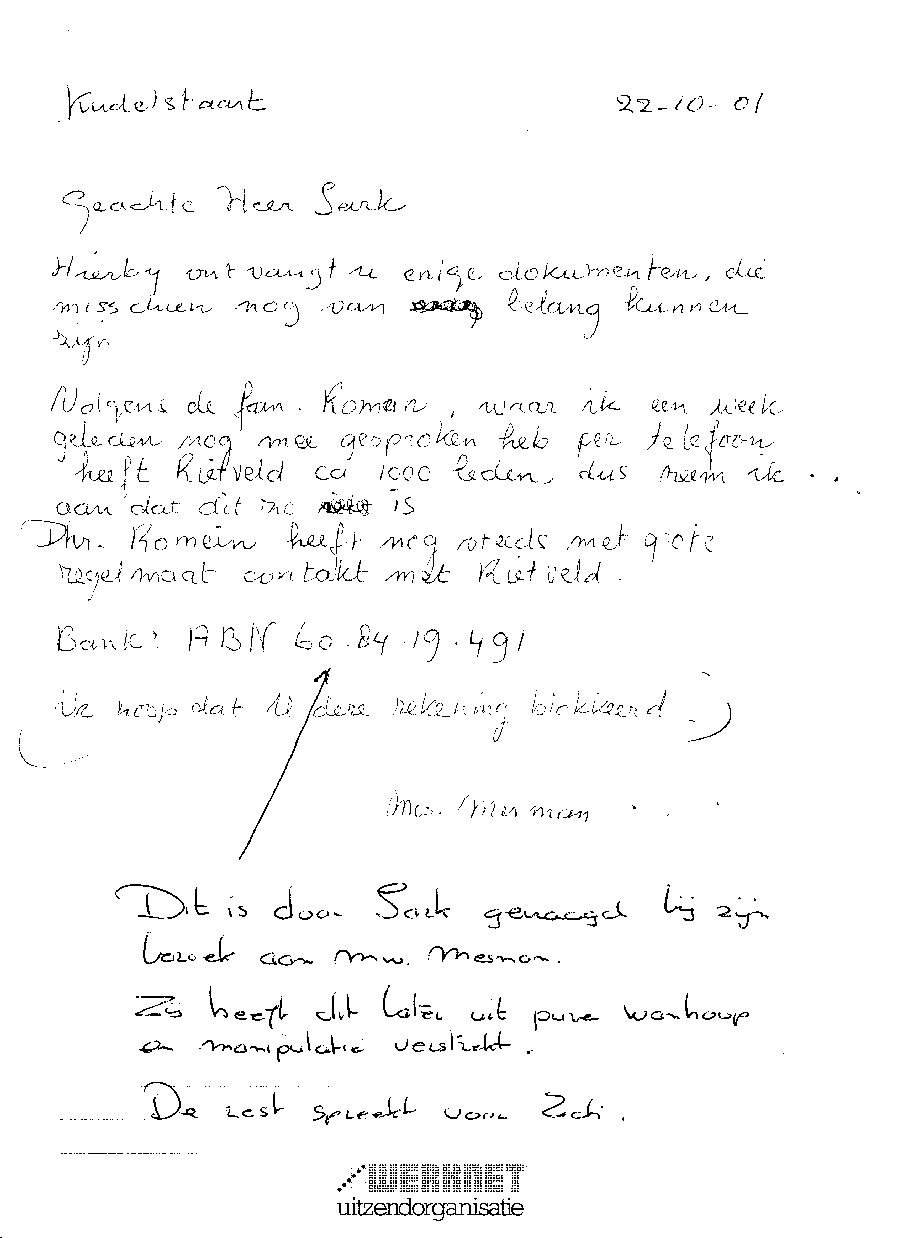 Kudelstaart 22-10-01
Geachte Heer Sark
Hierby ontvangt u enige dokumenten, die
misschien nog van belang kunnen
zijn
Volgens de fam. Romein, waar ik een week
geleden nog mee gesproken heb per telefoon
heeft Rietveld ca 1000 leden, dus neem ik
aan dat dit zo is
Dhr. Romein heeft nog steeds met grote
regelmaat contakt met Rietveld.
Bank: ABN 60.84.19.491
ik hoop dat U deze rekening blokkeerd
Mw.
Dit is door Sark gevraagd bij zijn
bezoek aan mw. Mesman.
Zij heeft dit later uit pure wanhoop
en manipulatie verstrekt.
De rest spreekt voor zich.
WERKNET
uitzendorganisatie